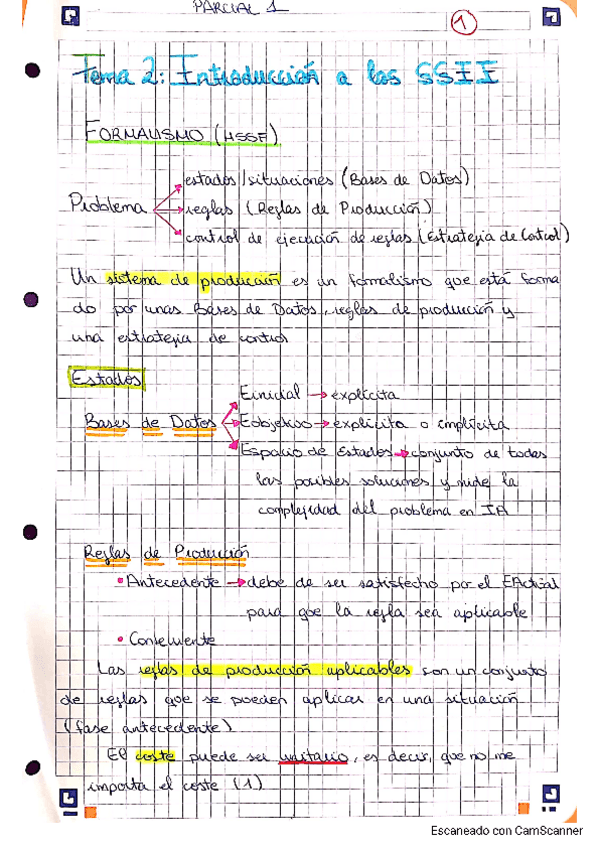 PARCIAL 1
1
Tema 2: Introducción a los SSII
FORMALISMO (HSSF)
estados/situaciones (Bases de Datos)
Problema reglas (Reglas de Producción)
control de ejecución de reglas (Estrategia de Control)
Un sistema de producción es un formalismo que está forma
do por unas Bases de Datos, reglas de producción y
una estrategia de control
Estados
Einicial → explícita
Bases de Datos Eobjetivo → explícita o implícita
Espacio de Estados → conjunto de todas
las posibles soluciones y mide la
complejidad del problema en IA
Reglas de Producción
• Antecedente → debe de ser satisfecho por el EActual
para que la regla sea aplicable
• Consecuente
Las reglas de producción aplicables son un conjunto
de reglas que se pueden aplicar en una situación
(fase antecedente)
El coste puede ser unitario, es decir, que no me
importa el coste (1)
Escaneado con CamScanner